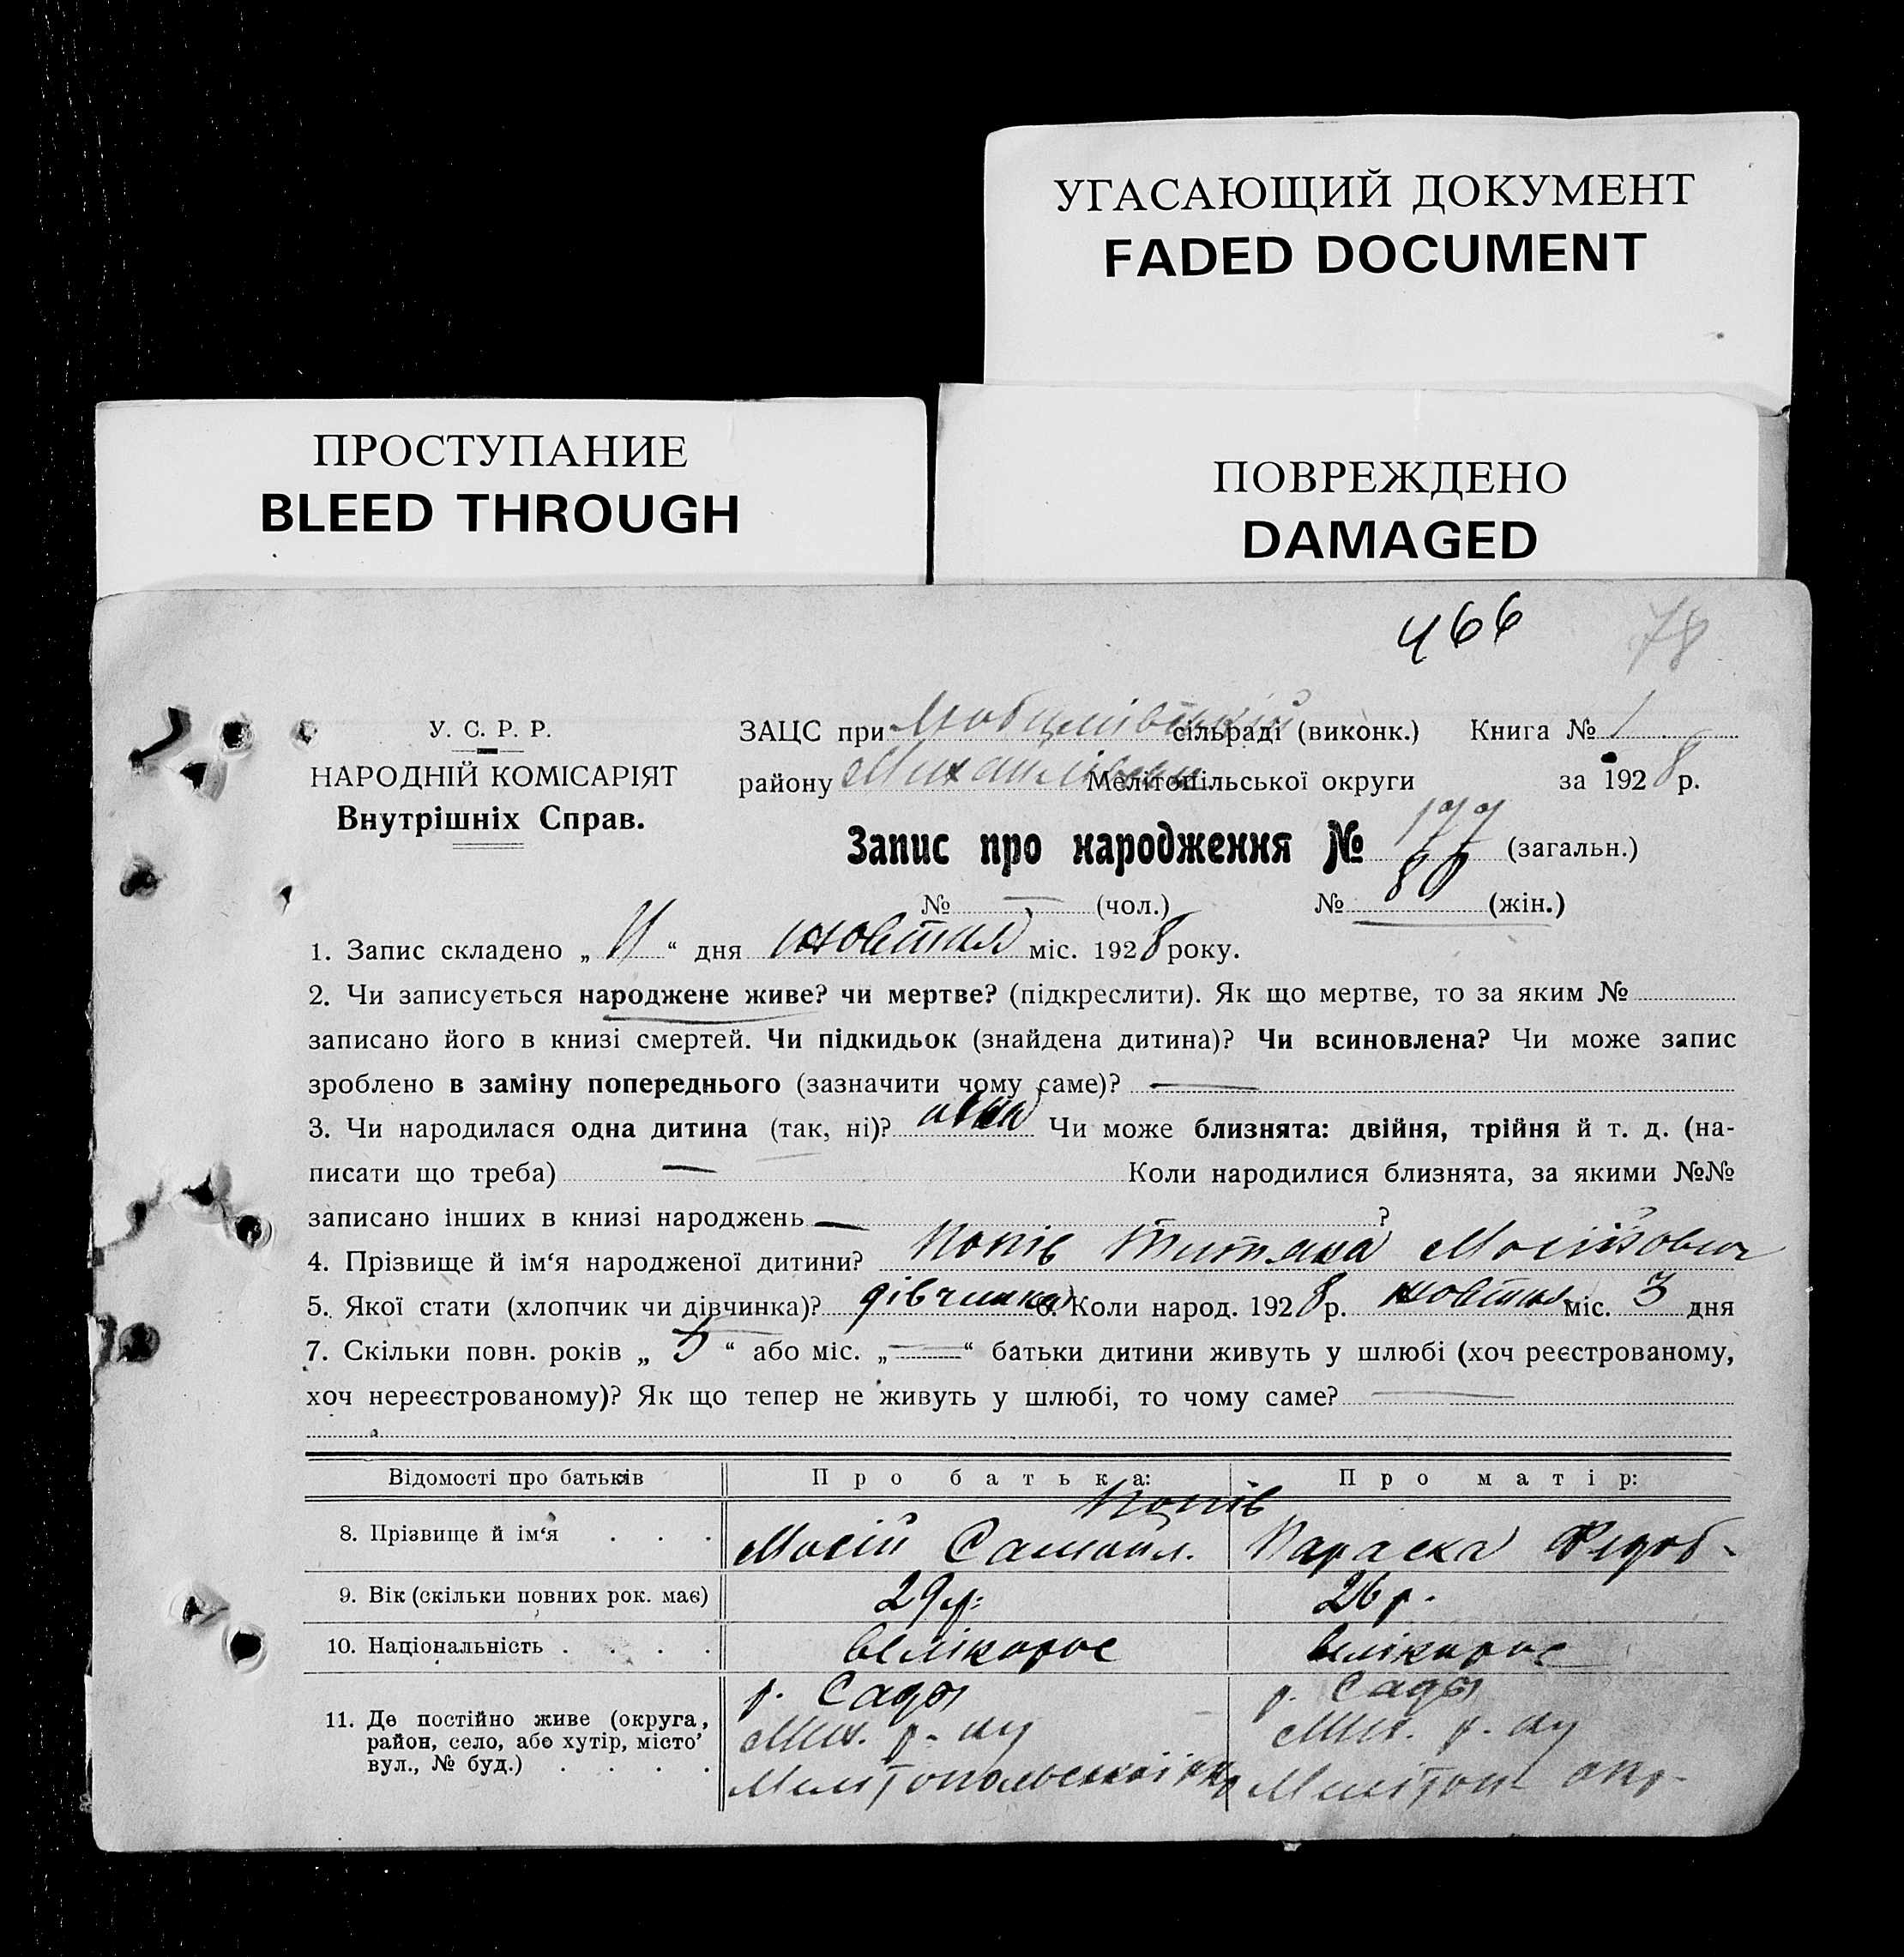 УГАСАЮЩИЙ ДОКУМЕНТ
FADED DOCUMENT
ПРОСТУПАНИЕ
BLEED THROUGH
ПОВРЕЖДЕНО
DAMAGED
466 78
У. С. Р. Р.
НАРОДНІЙ КОМІСАРІЯТ
Внутрішніх Справ.
ЗАЦС при сільраді (виконк.) Книга № 1
району Мелітопільської округи за 1928 р.
Запис про народження № 177 (загальн.)
№ — (чол.) № (жін.)
1. Запис складено „ “ дня жовтня міс. 1928 року.
2. Чи записується народжене живе? чи мертве? (підкреслити). Як що мертве, то за яким №
записано його в книзі смертей. Чи підкидьок (знайдена дитина)? Чи всиновлена? Чи може запис
зроблено в заміну попереднього (зазначити чому саме)? —
3. Чи народилася одна дитина (так, ні)? одна Чи може близнята: двійня, трійня й т. д. (на-
писати що треба) — Коли народилися близнята, за якими №№
записано інших в книзі народжень — ?
4. Прізвище й ім‘я народженої дитини? Попів Титяна
5. Якої стати (хлопчик чи дівчинка)? дівчинка 6. Коли народ. 1928 р. жовтня міс. 3 дня
7. Скільки повн. років „ 5 “ або міс. „ — “ батьки дитини живуть у шлюбі (хоч реєстрованому,
хоч нереєстрованому)? Як що тепер не живуть у шлюбі, то чому саме? —
Відомості про батьків Про батька: Про матір:
Попів
8. Прізвище й ім‘я . . . Мосій Самойл. Параска Федов-
9. Вік (скільки повних рок. має) 29 р. 26 р.
10. Національність . . . . велікорос велікорос
11. Де постійно живе (округа, район, село, або хутір, місто’ вул., № буд.) . . . .
с. Сады с. Сады
Мих. р-ну Мих. р-ну
Мелітопольської окр Мелітоп окр-